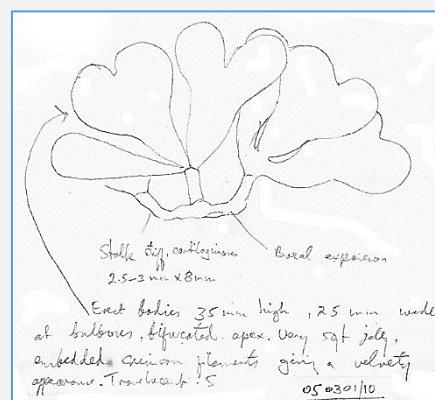 Stalk stiff, cartilaginous
Basal expansion
2.5-3 mm x 8 mm
Erect bodies 35 mm high, 25 mm wide
at bulbous, bifurcated apex. Very soft jelly,
embedded crimson filaments giving a velvety
appearance. Translucent.
050301/10